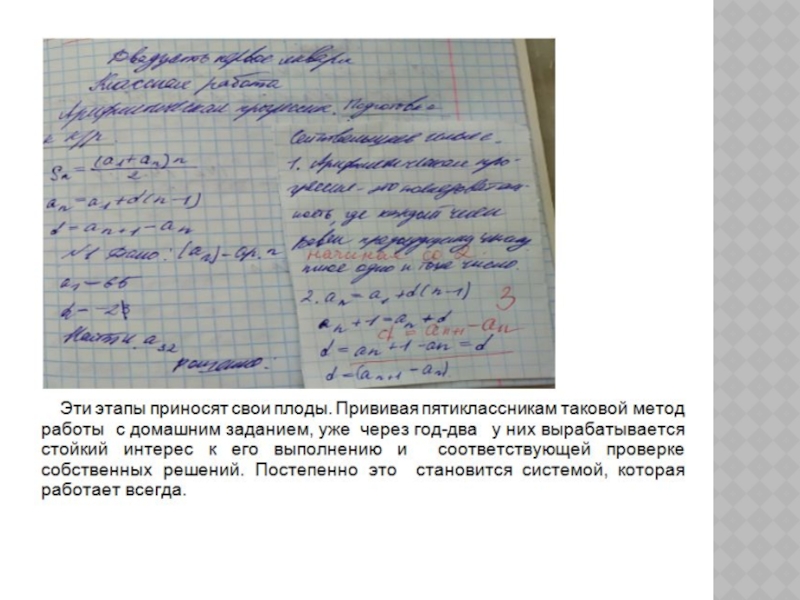 Двадцать первое января
Классная работа
Арифметическая прогрессия. Подготовка
к к/р
Sn = (a1+an)n / 2
an = a1+d(n-1)
d = an+1-an
№1 Дано: (an) - ар. п
a1 - 65
d = -2
Найти: a32
решение:
1. Арифметическая про-
грессия - это последователь-
ность, где каждый член
равен предыдущему числу,
начиная со 2
плюс одно и тоже число.
2. an = a1 + d(n-1)
3
an+1 = an + d
d = an+1 - an
d = an+1 - an = d
d = (an+1 - an)
Эти этапы приносят свои плоды. Прививая пятиклассникам таковой метод
работы с домашним заданием, уже через год-два у них вырабатывается
стойкий интерес к его выполнению и соответствующей проверке
собственных решений. Постепенно это становится системой, которая
работает всегда.